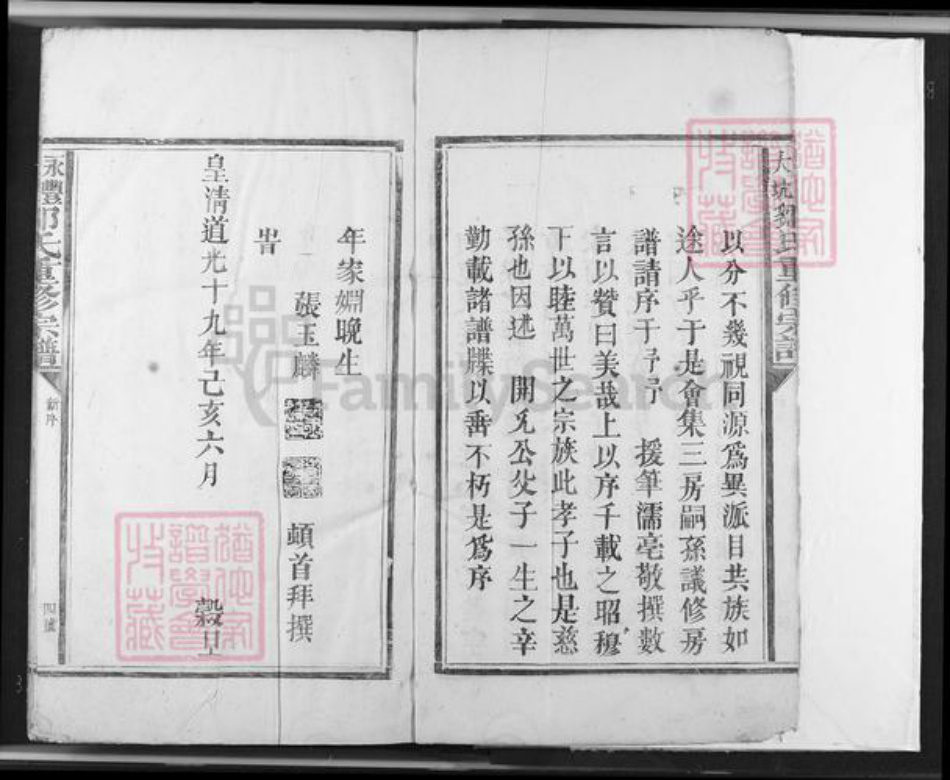 以分不幾視同源爲異派目共族如
途人乎于是會集三房嗣孫議修房
譜請序于予予 援筆濡亳敬撰數
言以贊曰美哉上以序千載之昭穆
下以睦萬世之宗族此孝子也是慈
孫也因述 開兄公父子一生之辛
勤載諸譜牒以垂不朽是爲序
年家姻晚生
張玉麟 頓首拜撰
旹
皇清道光十九年己亥六月 穀旦
永豐 氏重修宗譜
新序
四號
FamilySearch